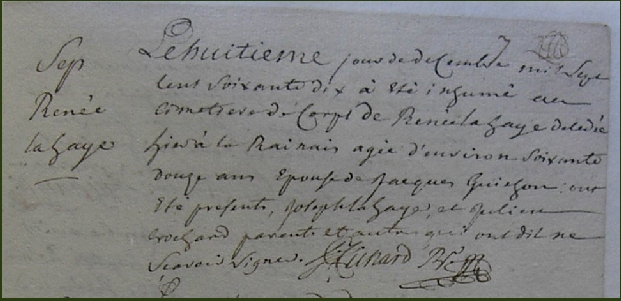 Sep
Renée
la haye
Le huitieme jour de decembre mil Sept
cent Soixante dix à été inhumé au
cimetiere le Corps de Renée la haye decedée
hier à la Rairais agée d'environ Soixante
douze ans Epouse de Jacques Guichon : ont
été presents, Joseph la haye, et Julien
crochard parents et autres qui ont dit ne
Scavoir Signer.